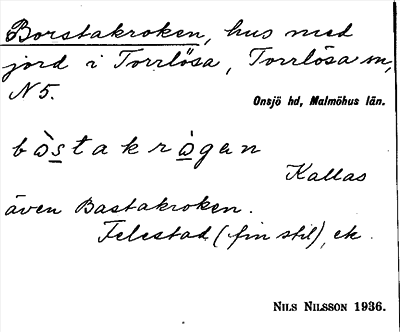 Borstakroken, hus med
jord i Torrlösa, Torrlösa sn,
N 5.
Onsjö hd, Malmöhus län.
bòstakrògen
Kallas
även Bastakroken.
Felestad (fin stil), ek.
NILS NILSSON 1936.